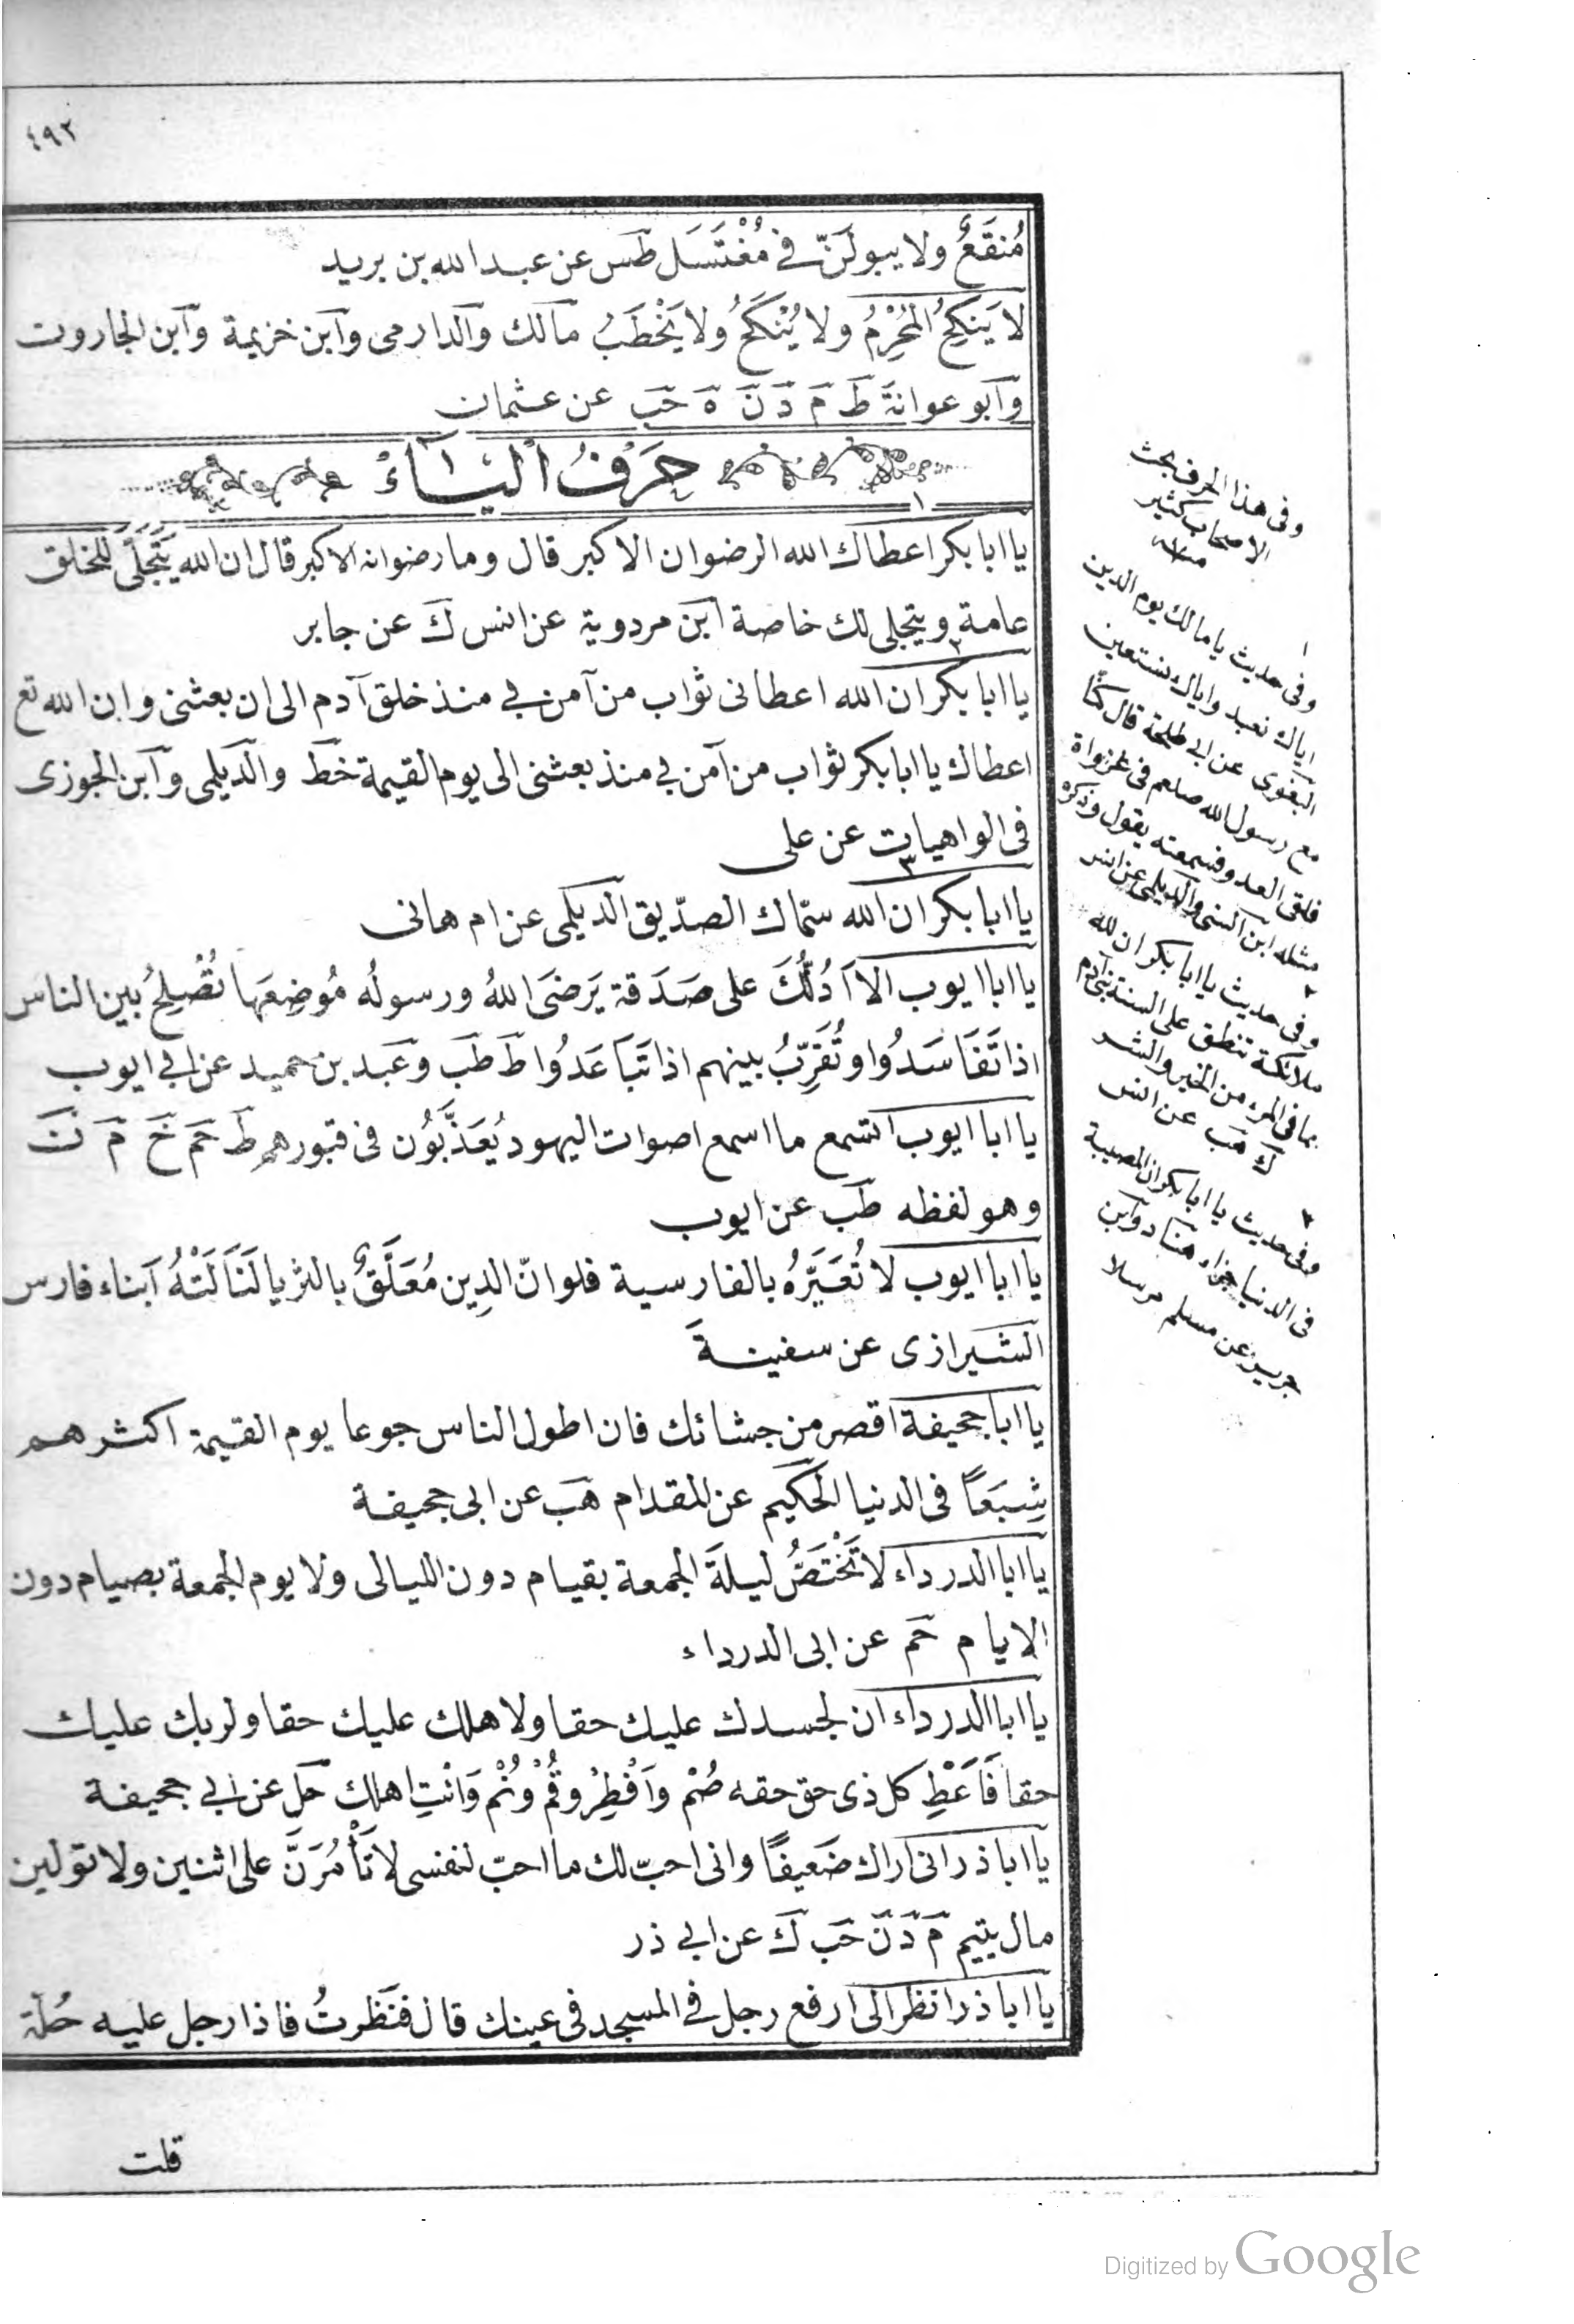 ٤٩٢
مُنقَعٌ ولا يبولَنّ فى مُغْتَسَل طَس عن عبد الله بن بريد
لا يَنكِحُ المُحْرِمُ ولا يُنْكَحُ ولا يَخْطَبُ مالك والدارمى وابن خزيمة وابن الجاروت
وابو عوانة ط م د ن ه حب عن عثمان
حَرْفُ اليَاءُ
يا ابا بكر اعطاك الله الرضوان الاكبر قال وما رضوانه الاكبر قال ان الله يَتَجَلَّى للخلق
عامة ويتجلى لك خاصة ابن مردوية عن انس ك عن جابر
يا ابا بكر ان الله اعطانى ثواب من آمن بى منذ خلق آدم الى ان بعثنى وان الله تع
اعطاك يا ابا بكر ثواب من آمن بى منذ بعثنى الى يوم القيمة خط والديلمى وابن الجوزى
فى الواهيات عن على
يا ابا بكر ان الله سمّاك الصدّيق الديلمى عن ام هانى
يا ابا ايوب الا اَدُلُّكَ على صَدَقة يَرضَى اللهُ ورسولُه مُوضِعَها تُصْلِحُ بين الناس
اذا تَفَاسَدُوا وتُقَرِّبُ بينهم اذا تَبَاعَدُوا ط طب وعبد بن حميد عن ابى ايوب
يا ابا ايوب اتسمع ما اسمع اصوات اليهود يُعَذَّبُون فى قبورهم ط حم خ م ن
وهو لفظه طب عن ايوب
يا ابا ايوب لا تُعَيِّرْهُ بالفارسية فلو انّ الدِين مُعَلَّقٌ بالثريا لَنَالَتْهُ ابناء فارس
الشيرازى عن سفينة
يا ابا جحيفة اقصر من جشائك فان اطول الناس جوعا يوم القيمة اكثرهم
شِبَعاً فى الدنيا الحكيم عن المقدام هب عن ابى جحيفة
يا ابا الدرداء لا تَخْتَصَّ ليلةَ الجمعة بقيام دون الليالى ولا يوم الجمعة بصيام دون
الايام حم عن ابى الدرداء
يا ابا الدرداء ان لجسدك عليك حقا ولاهلك عليك حقا ولربك عليك
حقا فَاَعْطِ كل ذى حق حقه صُمْ وَاَفْطِرْ وقُمْ ونُمْ وَائْتِ اهلك حل عن ابى جحيفة
يا ابا ذر انى اراك ضَعيفًا وانى احبّ لك ما احبّ لنفسى لا تَأْمُرَنَّ على اثنين ولا تولين
مال يتيم م د ن حب ك عن ابى ذر
يا ابا ذر انظر الى ارفع رجل فى المسجد فى عينك قال فنَظَرتُ فاذا رجل عليه حُلّة
قلت
وفى هذا الحرف بحث
الاصحاب كثير
منه
١
وفى حديث يا مالك يوم الدين
اياك نعبد واياك نستعين
البغوى عن ابى طلحة قال كنّا
مع رسول الله صلعم فى غزواة
فلقى العدو فسمعته يقول وذكره
مثله ابن السنى والديلمى عن انس
٢
وفى حديث يا ابا بكر ان لله
ملائكة تنطق على السنة بنى آدم
بما فى المرء من الخير والشر
ك هب عن انس
٣
وفى حديث يا ابا بكر ان المصيبة
فى الدنيا جزاء هناد وابن
جرير عن مسلم مرسلا
Digitized by Google